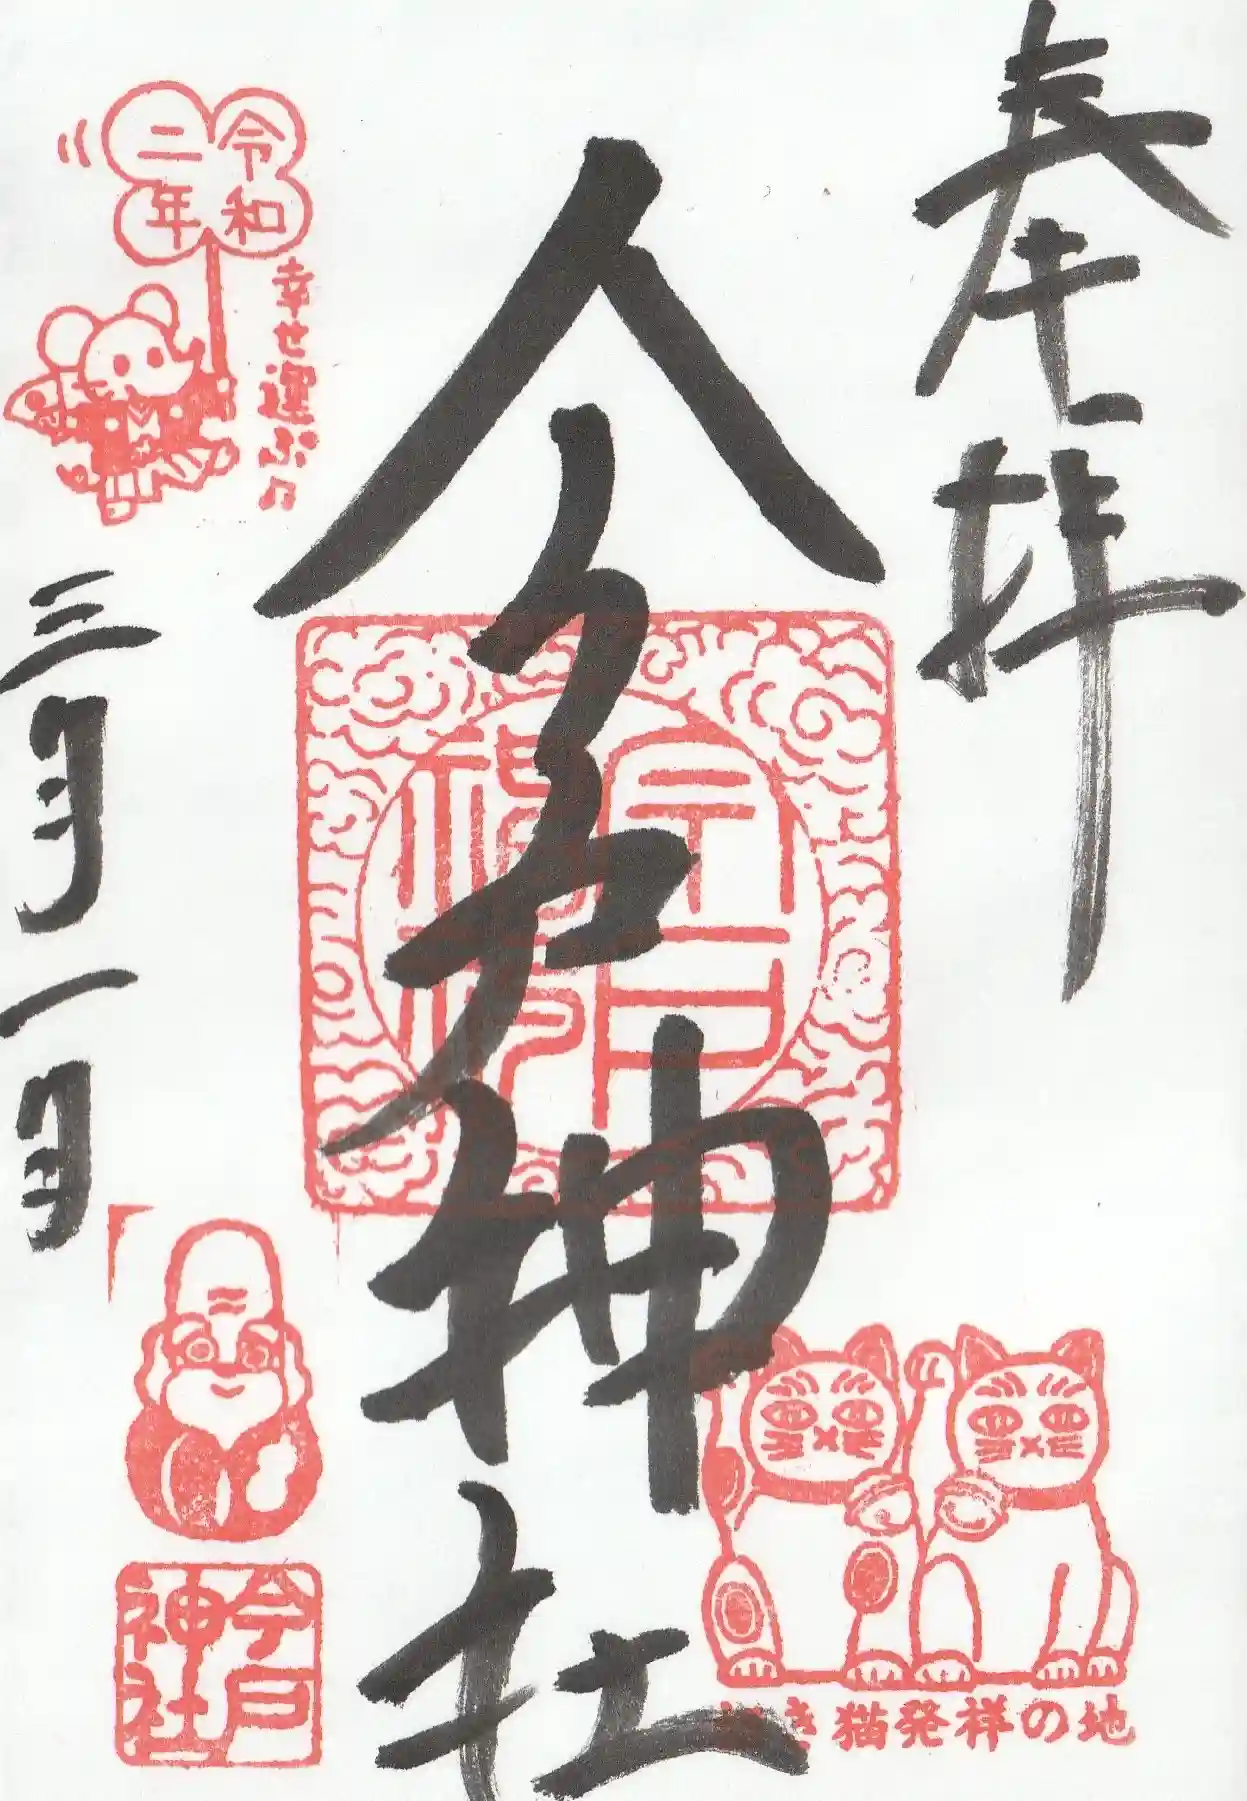 奉拝
今戸神社
令和
二年
幸せ運ぶ♫
三月一日
今戸
神社
招き猫発祥の地